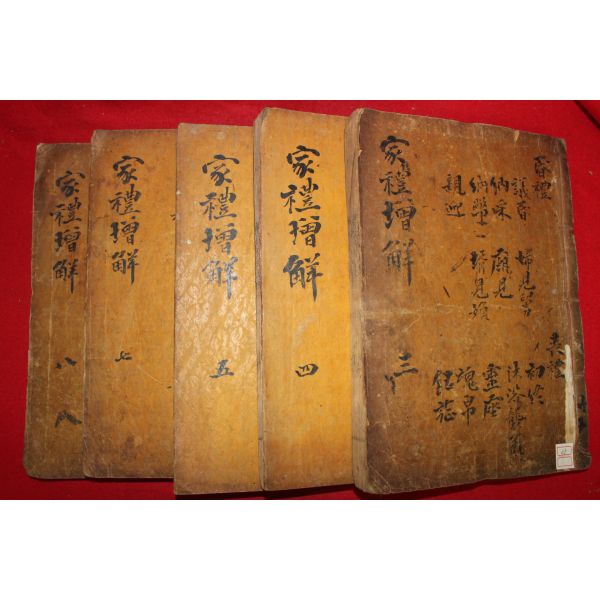 昏禮
議昏
納采
納幣
親迎
婦見舅
廟見
壻見
喪禮
初終
沐浴
靈座
魂帛
家禮增解
三
家禮增解
四
家禮增解
五
家禮增解
七
家禮增解
八
八